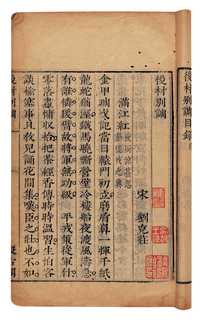 後村別調目錄
後村別調
宋 劉克莊
滿江紅
金甲琱戈記當日轅門初立磨盾鼻一揮千紙
龍蛇猶濕鐵馬曉嘶營壁冷樓船夜渡風濤急
有誰憐猿臂故將軍無功級 平戎策從軍什
零落盡慵收拾把茶經香傳時時溫習生怕客
談榆塞事且教兒誦花間集嘆臣之壯也不如